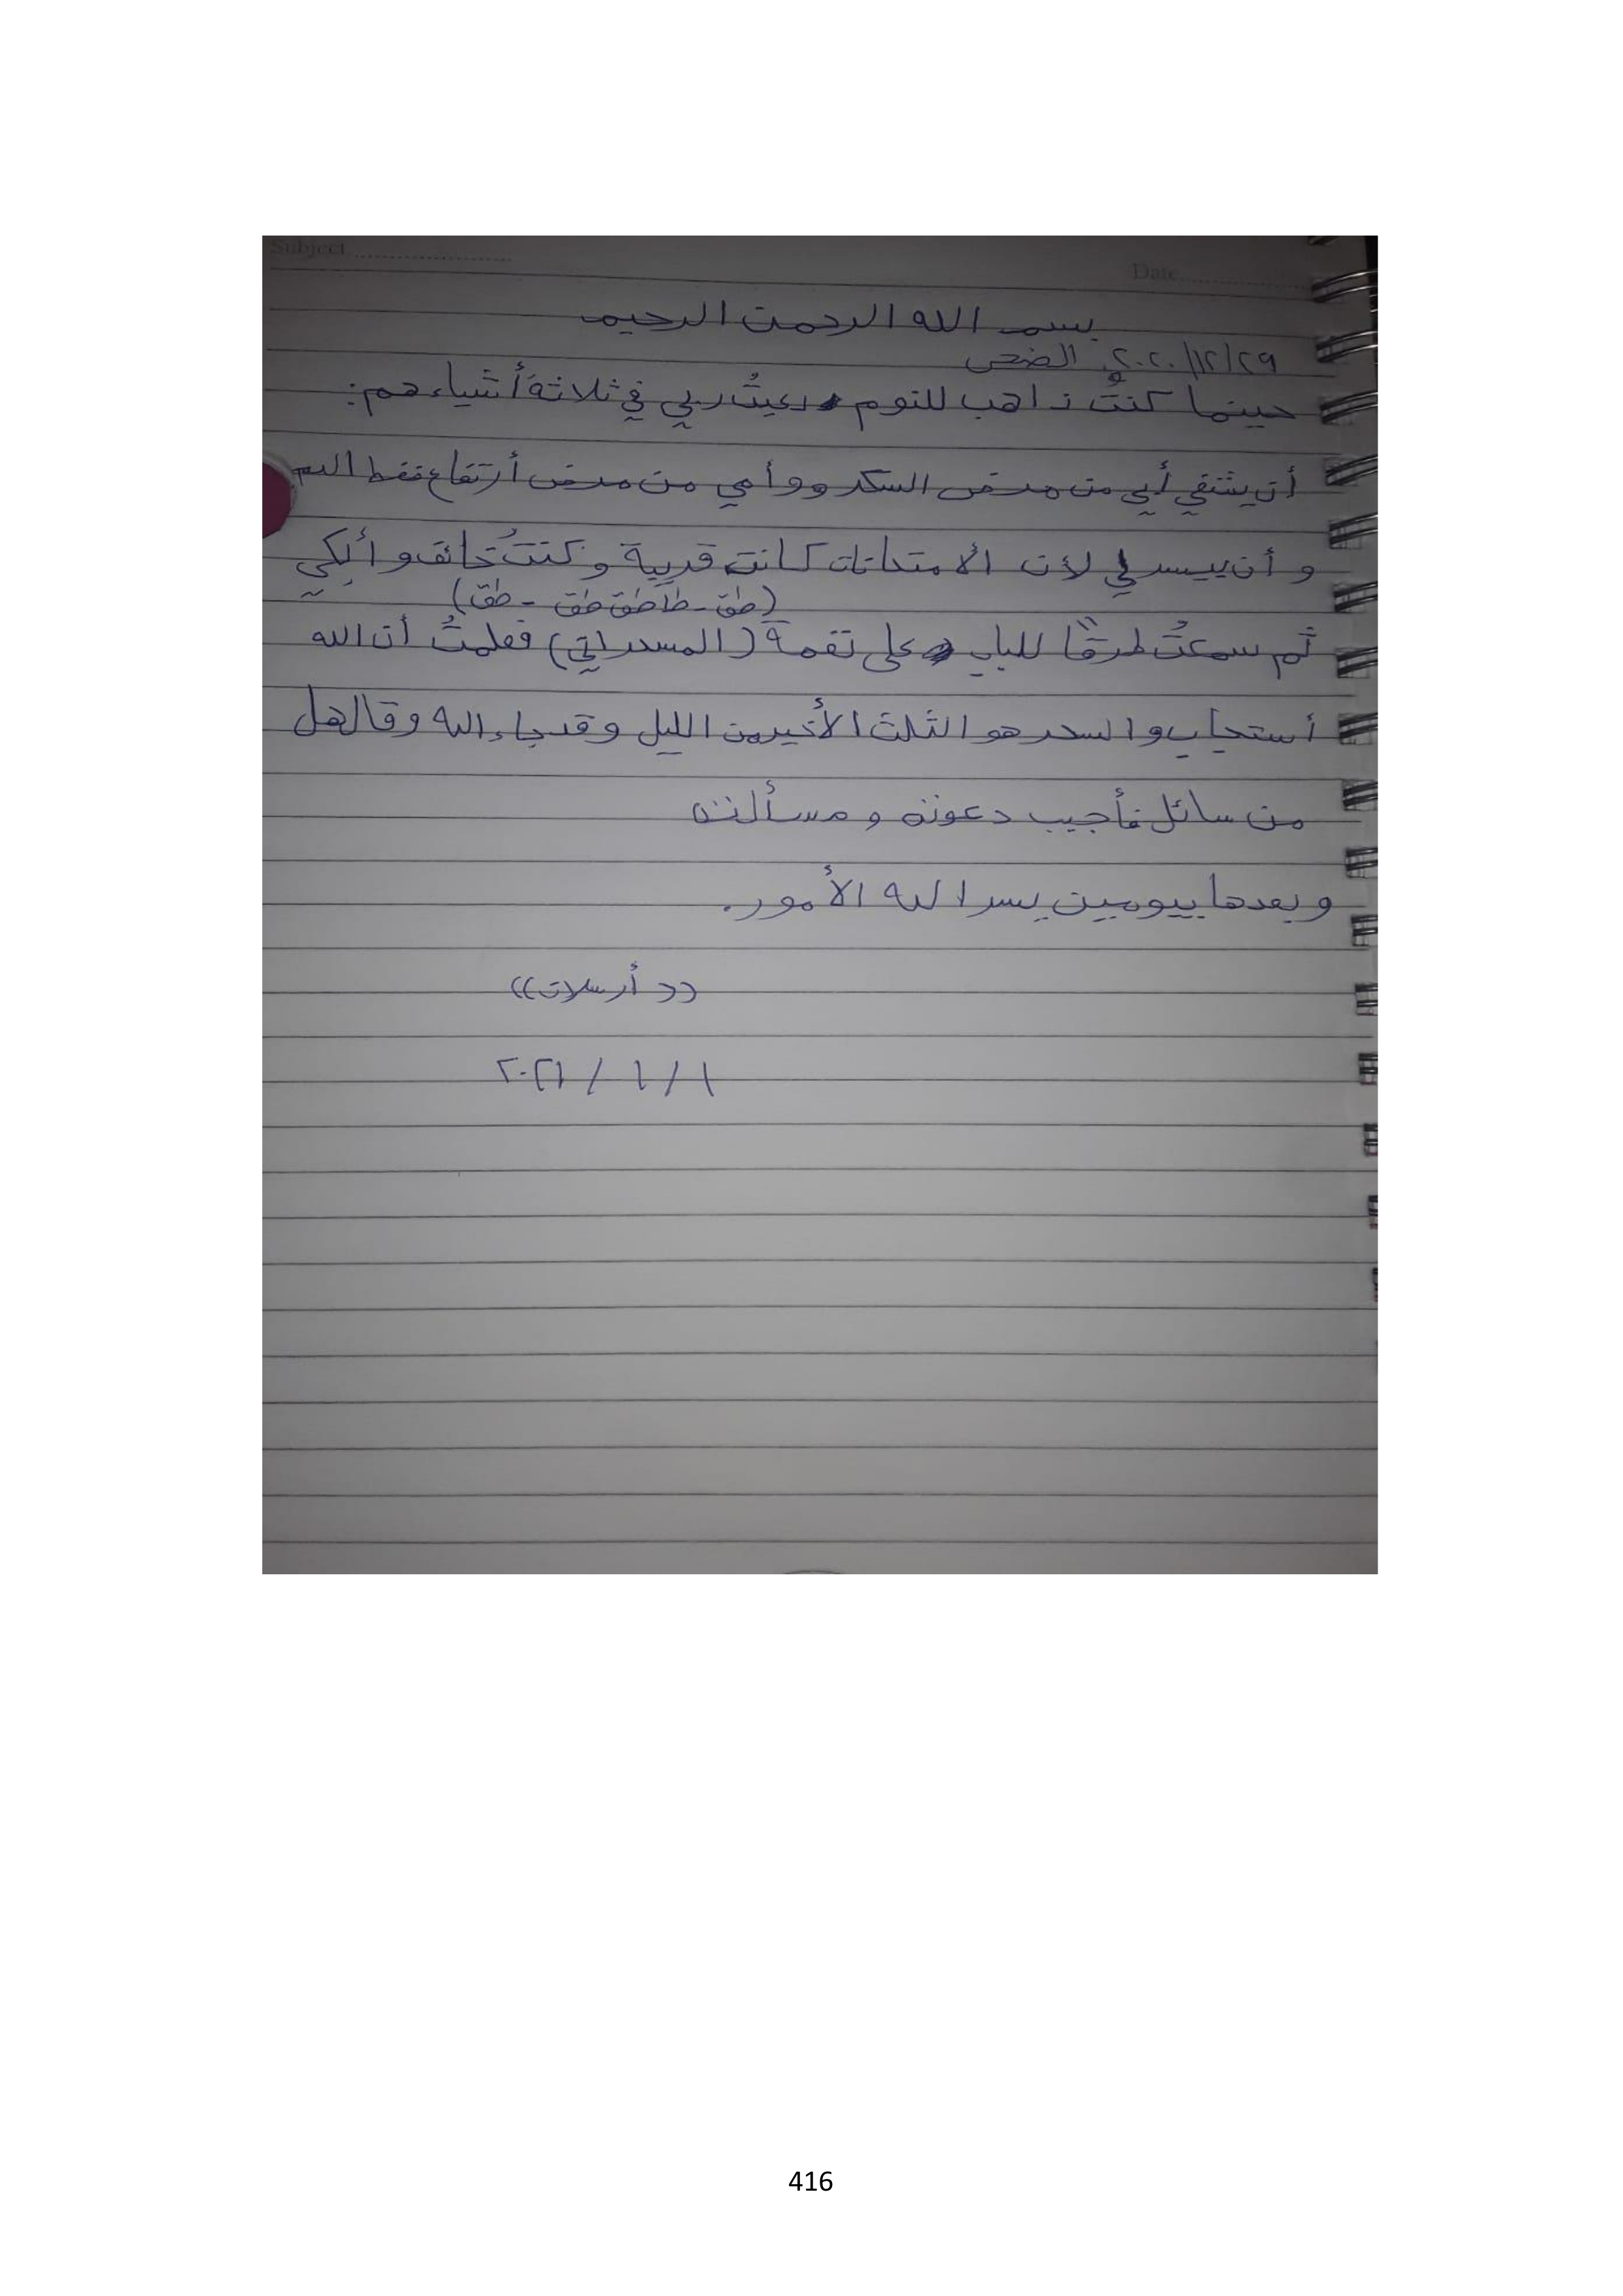 Subject
Date
بسم الله الرحمن الرحيم
٢٩/١٢/٢٠٢٠ الضحى
حينما كنتُ ذاهب للنوم دعيتُ ربي في ثلاثة أشياء هم:
أن يشفي أبي من مرض السكر و وأمي من مرض أرتفاع ضغط الدم
و أن ييسر لي لأن الأمتحانات كانت قريبة و كنتُ خائف و أبكي
(طق - طاطق طق - طق)
ثم سمعتُ طرقًا للباب على نغمة (المسحراتي) فعلمتُ أن الله
أستجاب و السحر هو الثلث الأخير من الليل وقد جاء الله وقال هل
من سائل فأجيب دعوته و مسألته
و بعدها بيومين يسر الله الأمور.
((أرسلان))
١ / ١ / ٢٠٢١
416